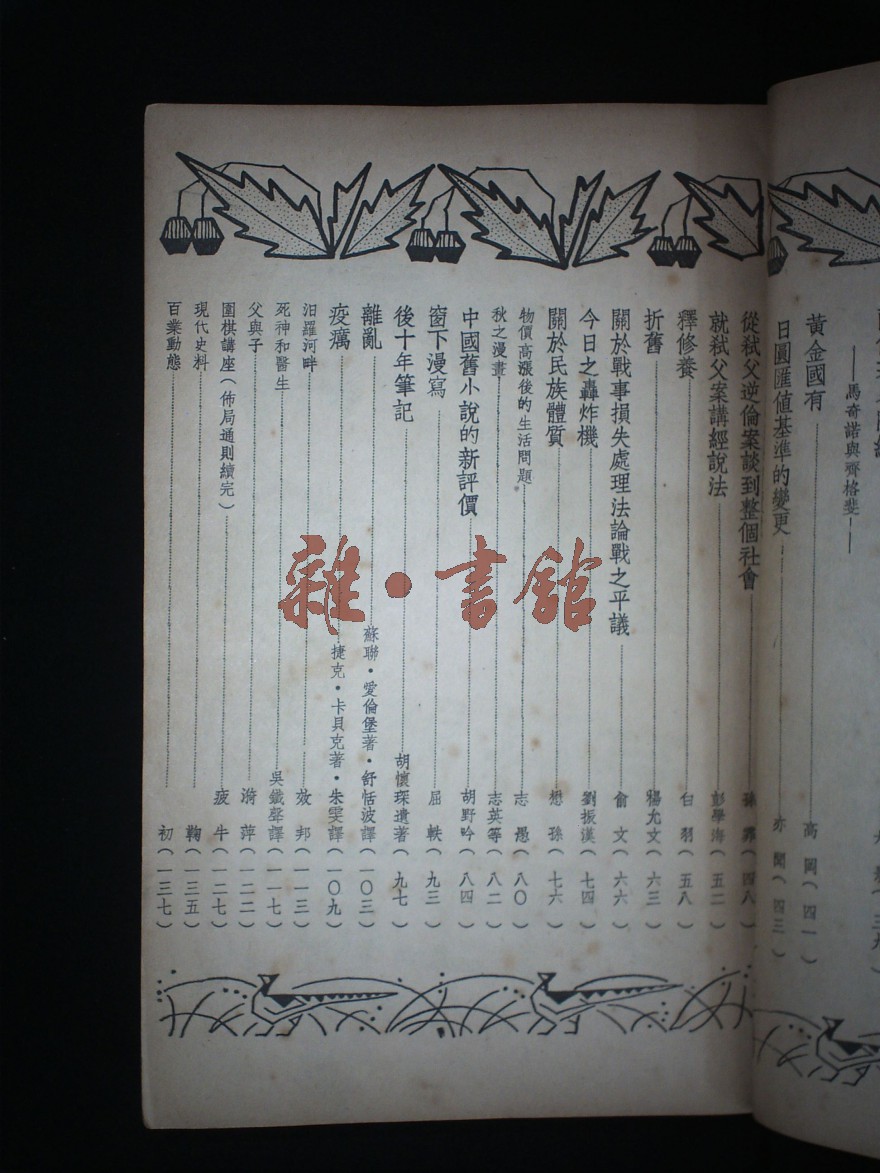 ——馬奇諾與齊格斐——
黃金國有 高岡(四一)
日圓匯值基準的變更 亦閔(四三)
從弒父逆倫案談到整個社會 (四八)
就弒父案講經說法 彭學海(五二)
釋修養 白羽(五八)
折舊 楊允文(六三)
關於戰事損失處理法論戰之平議 俞文(六六)
今日之轟炸機 劉振漢(七四)
關於民族體質 懋孫(七六)
物價高漲後的生活問題 志愚(八〇)
秋之漫畫 志英等(八二)
中國舊小說的新評價 胡野吟(八四)
窗下漫寫 屈軼(九三)
後十年筆記 胡懷琛遺著(九七)
離亂 蘇聯·愛倫堡著·舒恬波譯(一〇三)
疫癘 捷克·卡貝克著·朱雯譯(一〇九)
汨羅河畔 效邦(一一三)
死神和醫生 吳鐵聲譯(一一七)
父與子 漪萍(一二二)
圍棋講座(佈局通則續完) 疲牛(一二七)
現代史料 鞠(一三五)
百業動態 初(一三七)
雜·書館